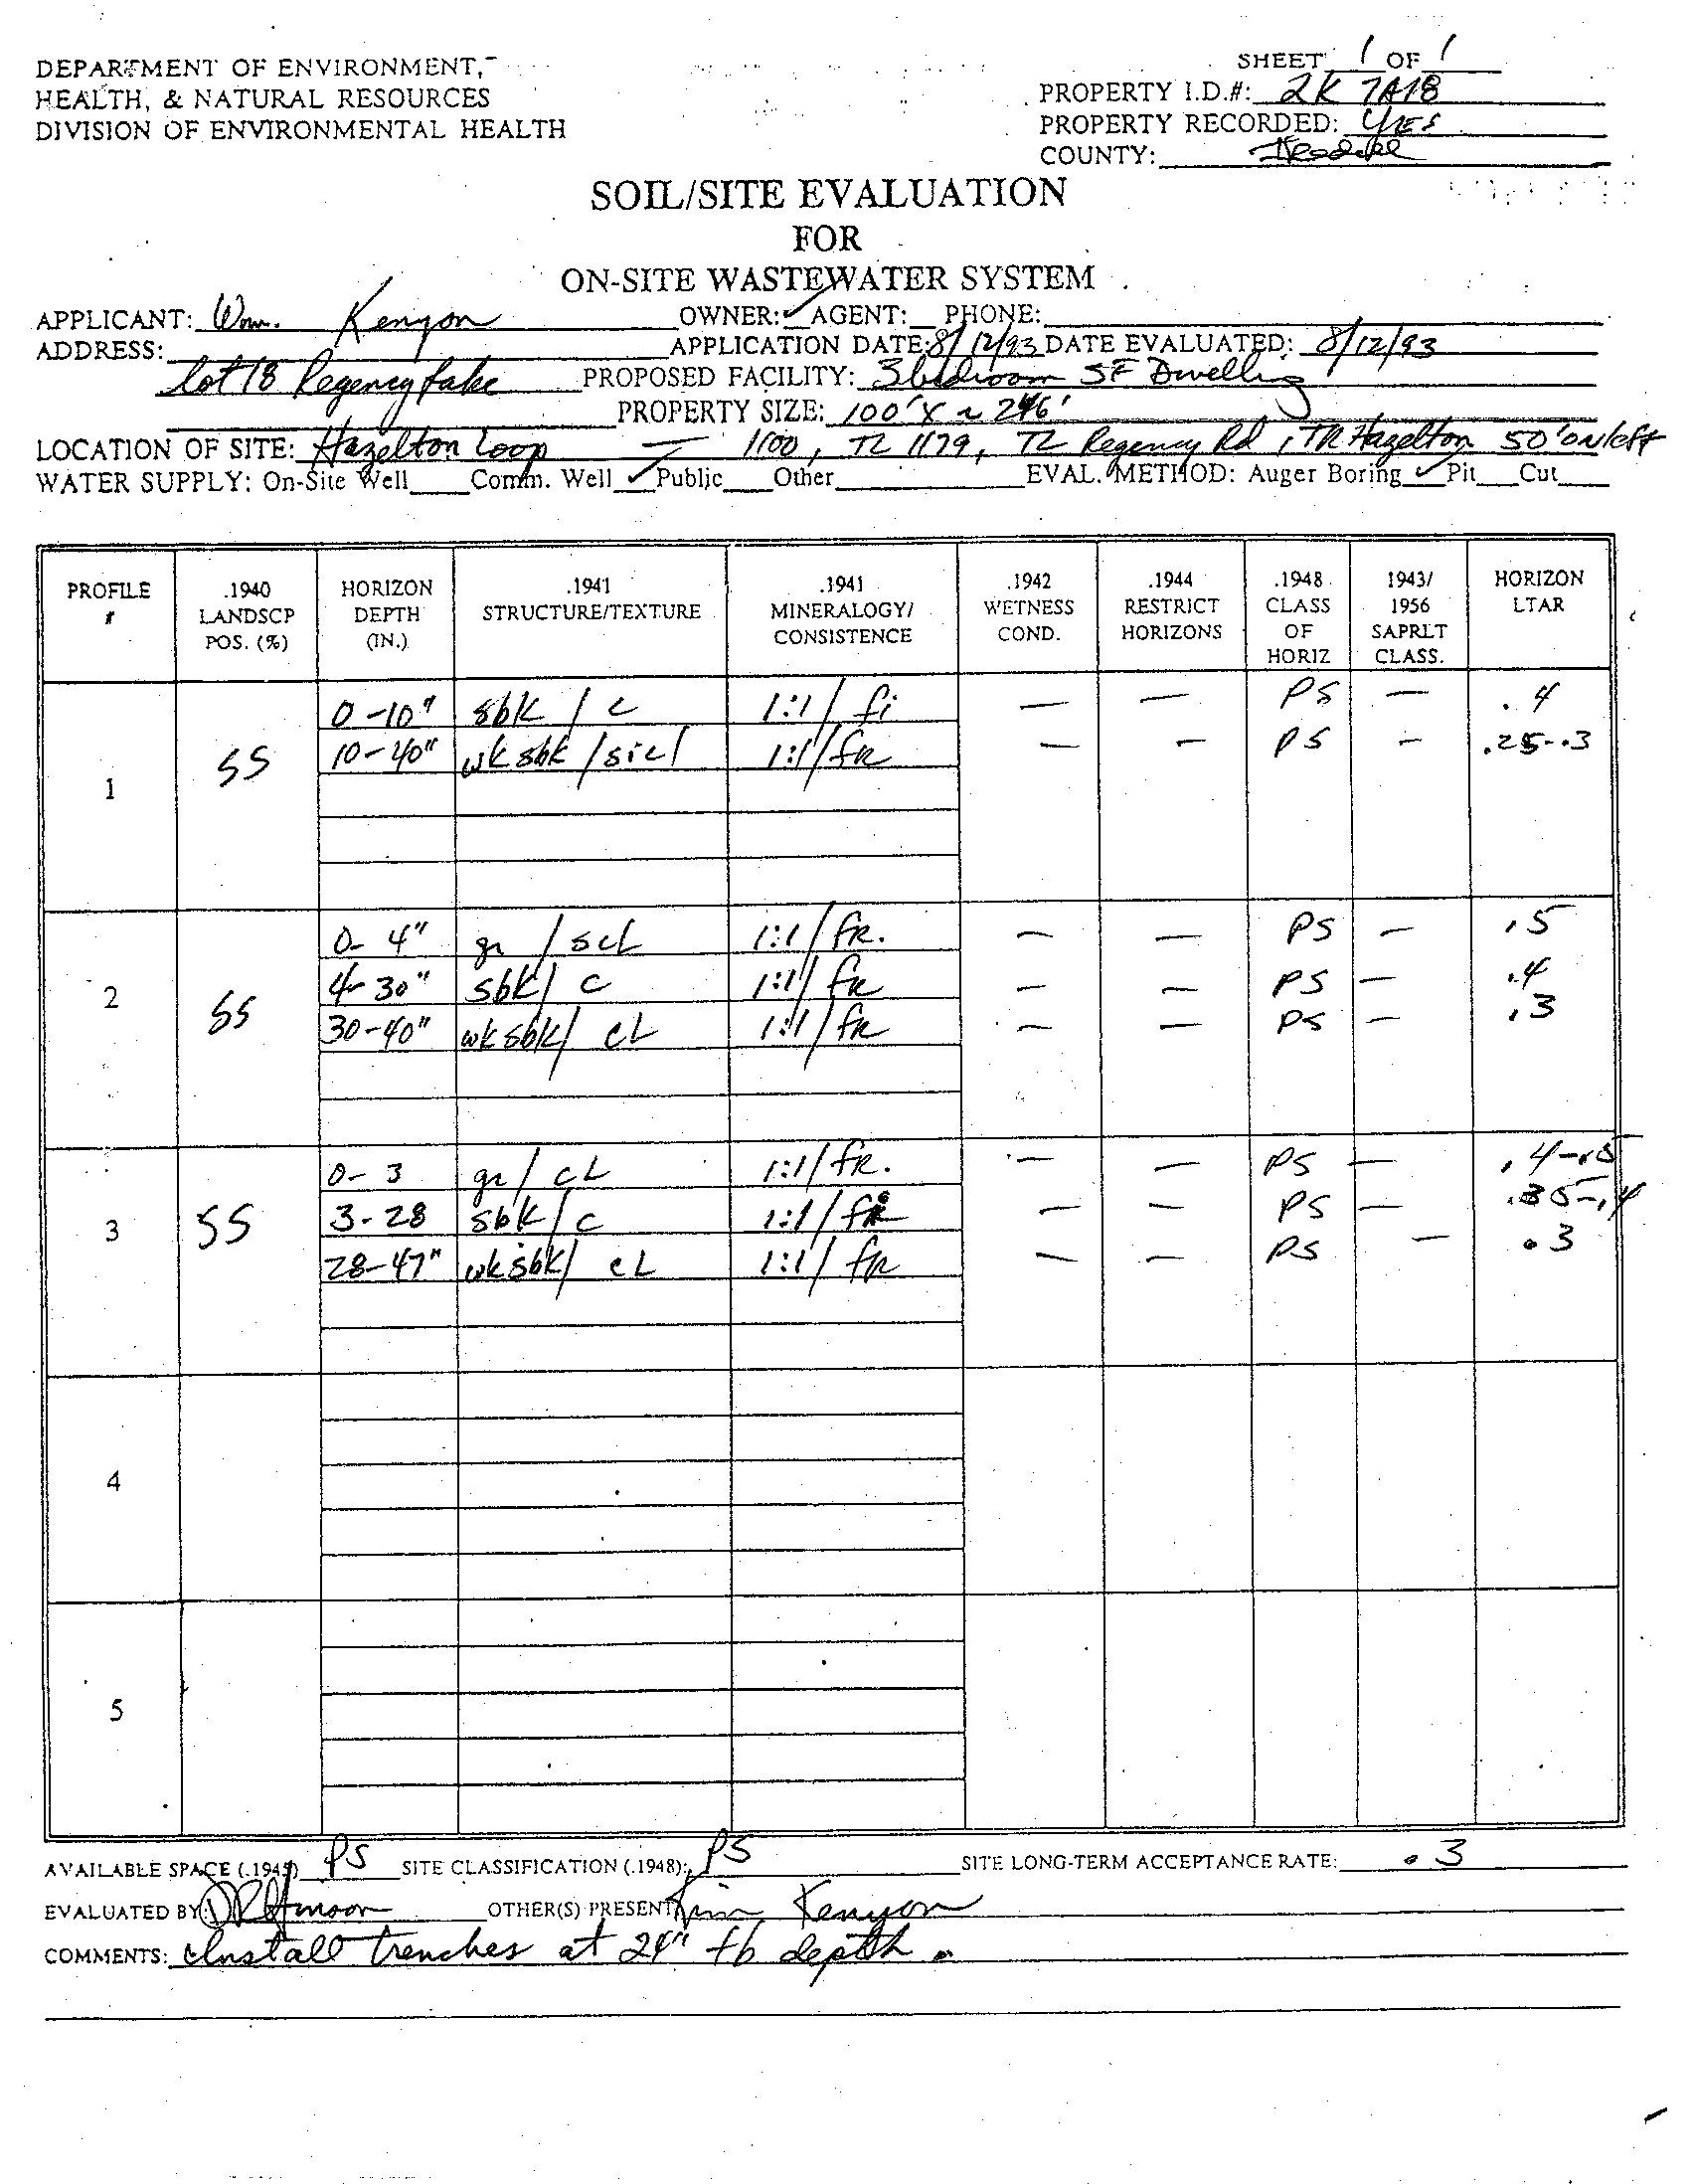 SHEET 1 OF 1
DEPARTMENT OF ENVIRONMENT,
HEALTH, & NATURAL RESOURCES
DIVISION OF ENVIRONMENTAL HEALTH
PROPERTY I.D.#: 2K 7A18
PROPERTY RECORDED: yes
COUNTY: Iredell
SOIL/SITE EVALUATION
FOR
ON-SITE WASTEWATER SYSTEM
APPLICANT: Wm. Kenyon OWNER: ✓ AGENT: PHONE:
ADDRESS: APPLICATION DATE: 8/12/93 DATE EVALUATED: 8/12/93
Lot 18 Regency Lake PROPOSED FACILITY: 3 bedroom SF Dwelling
PROPERTY SIZE: 100' X ~ 246'
LOCATION OF SITE: Hazelton Loop — 1100, TL 1179, TL Regency Rd, TR Hazelton 50' on left
WATER SUPPLY: On-Site Well Comm. Well ✓ Public Other EVAL. METHOD: Auger Boring ✓ Pit Cut
PROFILE # .1940 LANDSCP POS. (%) HORIZON DEPTH (IN.) .1941 STRUCTURE/TEXTURE .1941 MINERALOGY/ CONSISTENCE .1942 WETNESS COND. .1944 RESTRICT HORIZONS .1948 CLASS OF HORIZ 1943/ 1956 SAPRLT CLASS. HORIZON LTAR
1 SS 0-10" sbk / c 1:1/ fi — — PS — .4
10-40" wk sbk / sicl 1:1/ fR — — PS — .25-.3
2 SS 0- 4" gr / scL 1:1/ fR. — — PS — .5
4- 30" sbk/ c 1:1/ fR — — PS — .4
30-40" wk sbk/ cL 1:1/ fR — — PS — .3
3 SS 0- 3 gr/ cL 1:1/ fR. — — PS — .4-.5
3-28 sbk/ c 1:1/ fi — — PS — .35-.4
28-47" wk sbk/ cL 1:1/ fR — — PS — .3
4
5
AVAILABLE SPACE (.1945) PS SITE CLASSIFICATION (.1948): PS SITE LONG-TERM ACCEPTANCE RATE: .3
EVALUATED BY: OTHER(S) PRESENT: Kenyon
COMMENTS: Install trenches at 24" tb depth.